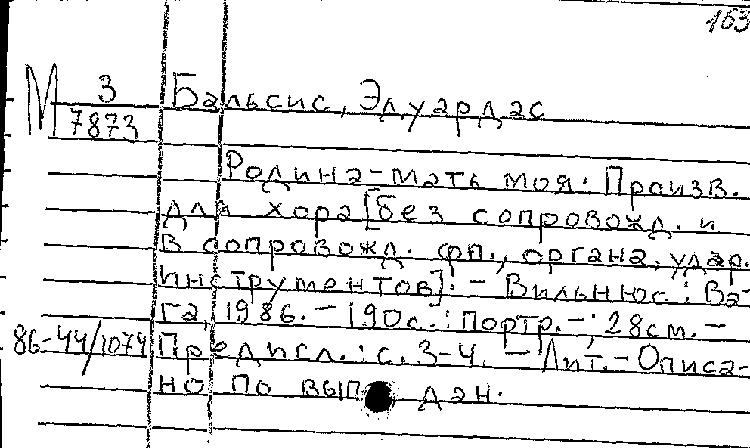 153
М 3/7873
Бальсис, Эдуардас
Родина-мать моя: Произв.
для хора [без сопровожд. и
в сопровожд. фп., органа, удар.
инструментов]. - Вильнюс: Ва-
га, 1986. - 190 с.: портр. -; 28 см. -
86-44/1074 Предисл.: с. 3-4. - Лит. - Описа-
но по вып. дан.